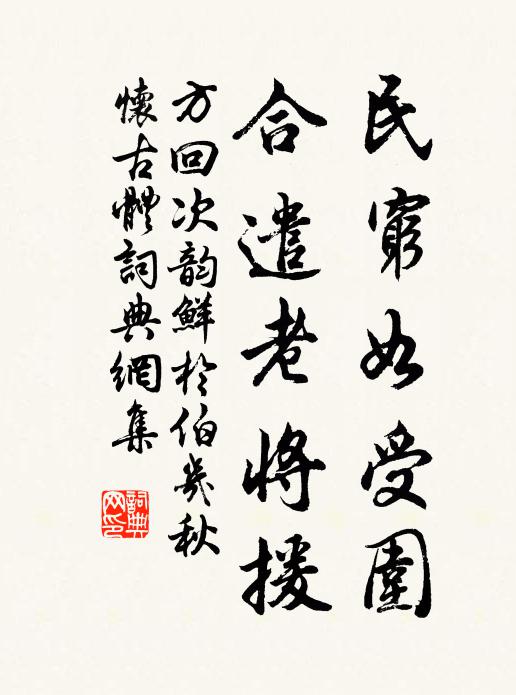 民窮如受圍
合遣老將援
方回次韵鮮於伯幾秋
懷古體詞典網集
詞典
网印